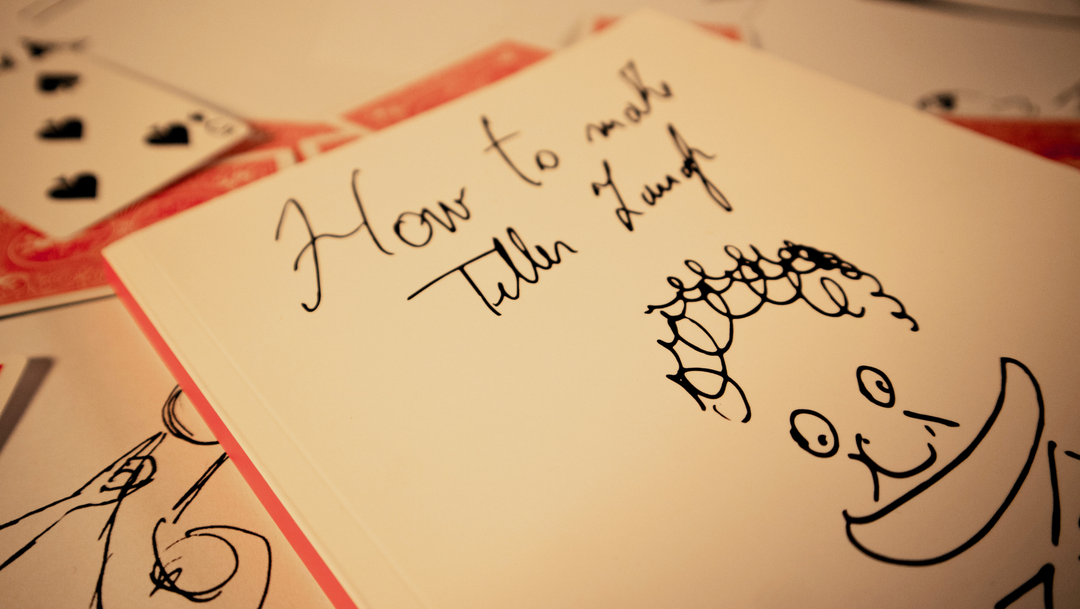 How to make
Teller Laugh